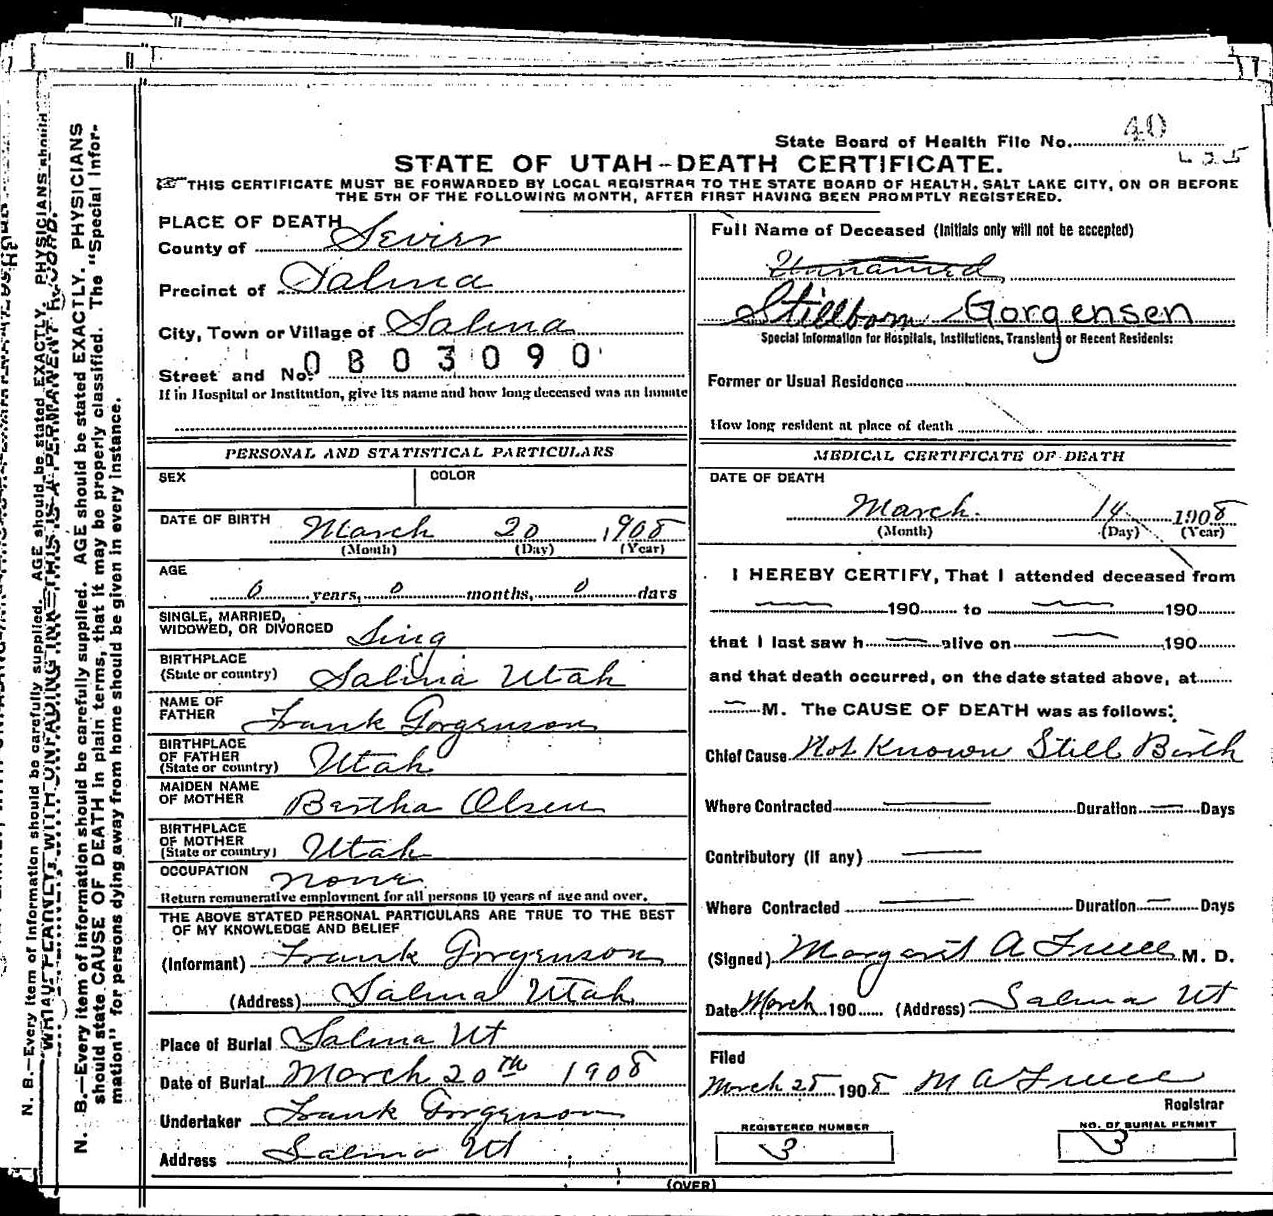 State Board of Health File No. 40
STATE OF UTAH-DEATH CERTIFICATE.
THIS CERTIFICATE MUST BE FORWARDED BY LOCAL REGISTRAR TO THE STATE BOARD OF HEALTH, SALT LAKE CITY, ON OR BEFORE
THE 5TH OF THE FOLLOWING MONTH, AFTER FIRST HAVING BEEN PROMPTLY REGISTERED.
PLACE OF DEATH
County of Sevier
Precinct of Salina
City, Town or Village of Salina
Street and No. 0803090
If in Hospital or Institution, give its name and how long deceased was an inmate
PERSONAL AND STATISTICAL PARTICULARS
SEX
COLOR
DATE OF BIRTH March 20 1908
(Month) (Day) (Year)
AGE
0 years, 0 months, 0 days
SINGLE, MARRIED,
WIDOWED, OR DIVORCED Sing
BIRTHPLACE
(State or country) Salina Utah
NAME OF
FATHER Frank Gorgenson
BIRTHPLACE
OF FATHER
(State or country) Utah
MAIDEN NAME
OF MOTHER Bertha Olsen
BIRTHPLACE
OF MOTHER
(State or country) Utah
OCCUPATION none
Return remunerative employment for all persons 10 years of age and over.
THE ABOVE STATED PERSONAL PARTICULARS ARE TRUE TO THE BEST
OF MY KNOWLEDGE AND BELIEF
(Informant) Frank Gorgenson
(Address) Salina Utah
Place of Burial Salina Ut
Date of Burial March 20th 1908
Undertaker Frank Gorgenson
Address Salina Ut
Full Name of Deceased (Initials only will not be accepted)
Unnamed
Stillborn Gorgensen
Special Information for Hospitals, Institutions, Transients or Recent Residents:
Former or Usual Residence
How long resident at place of death
MEDICAL CERTIFICATE OF DEATH
DATE OF DEATH
March 14 1908
(Month) (Day) (Year)
I HEREBY CERTIFY, That I attended deceased from
190 to 190
that I last saw h alive on 190
and that death occurred, on the date stated above, at
M. The CAUSE OF DEATH was as follows:
Chief Cause Not Known Still Birth
Where Contracted Duration Days
Contributory (If any)
Where Contracted Duration Days
(Signed) Margaret A M. D.
Date March 190 (Address) Salina Ut
Filed
March 25 1908 M A
Registrar
REGISTERED NUMBER
3
NO. OF BURIAL PERMIT
3
(OVER)
N. B.—Every item of information should be carefully supplied. AGE should be stated EXACTLY. PHYSICIANS
should state CAUSE OF DEATH in plain terms, that it may be properly classified. The "Special Infor-
mation" for persons dying away from home should be given in every instance.